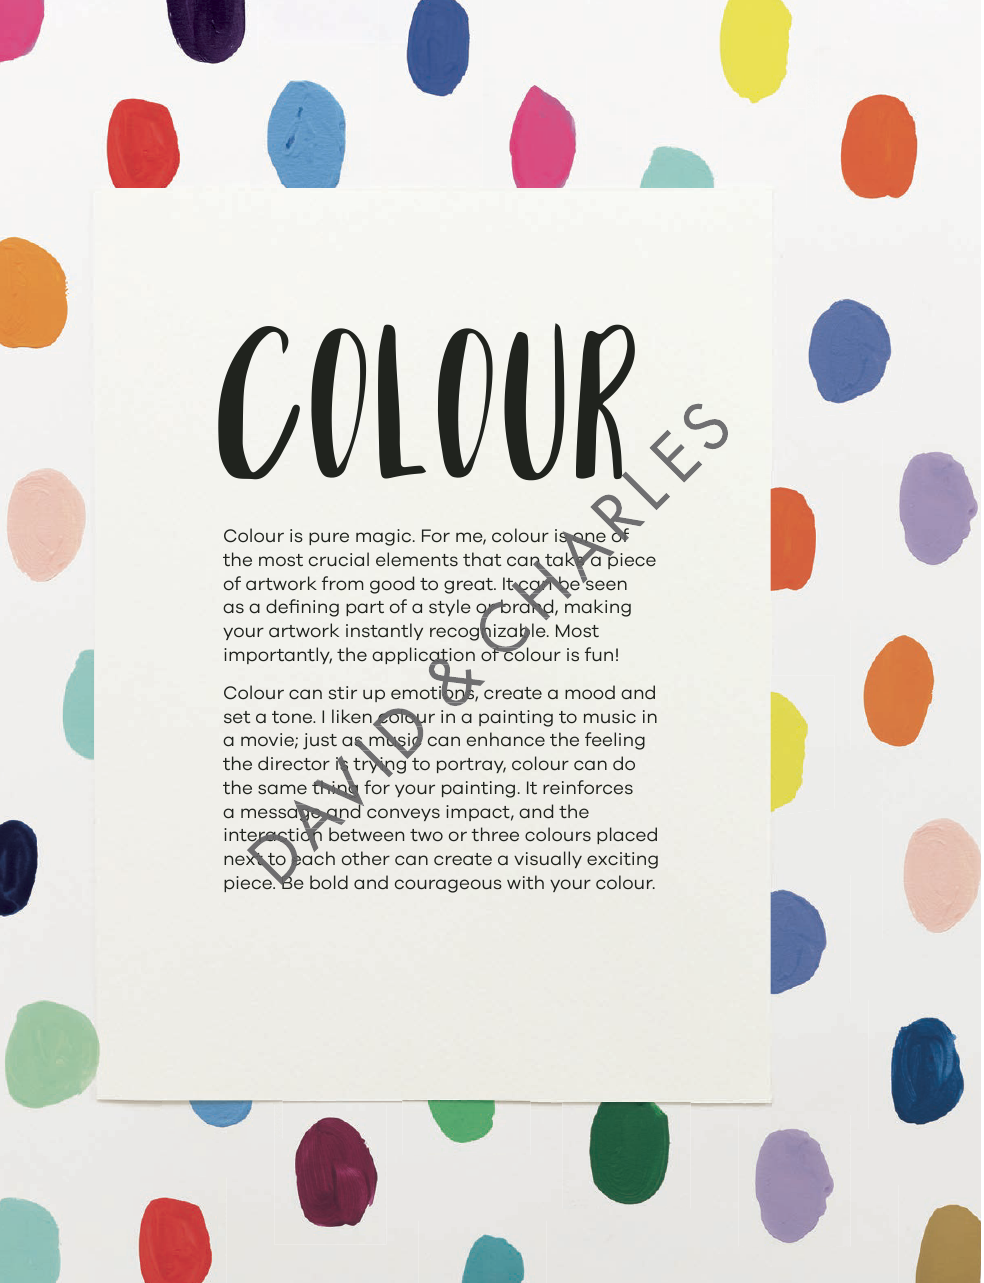 COLOUR
Colour is pure magic. For me, colour is one of
the most crucial elements that can take a piece
of artwork from good to great. It can be seen
as a defining part of a style or brand, making
your artwork instantly recognizable. Most
importantly, the application of colour is fun!
Colour can stir up emotions, create a mood and
set a tone. I liken colour in a painting to music in
a movie; just as music can enhance the feeling
the director is trying to portray, colour can do
the same thing for your painting. It reinforces
a message and conveys impact, and the
interaction between two or three colours placed
next to each other can create a visually exciting
piece. Be bold and courageous with your colour.
DAVID & CHARLES